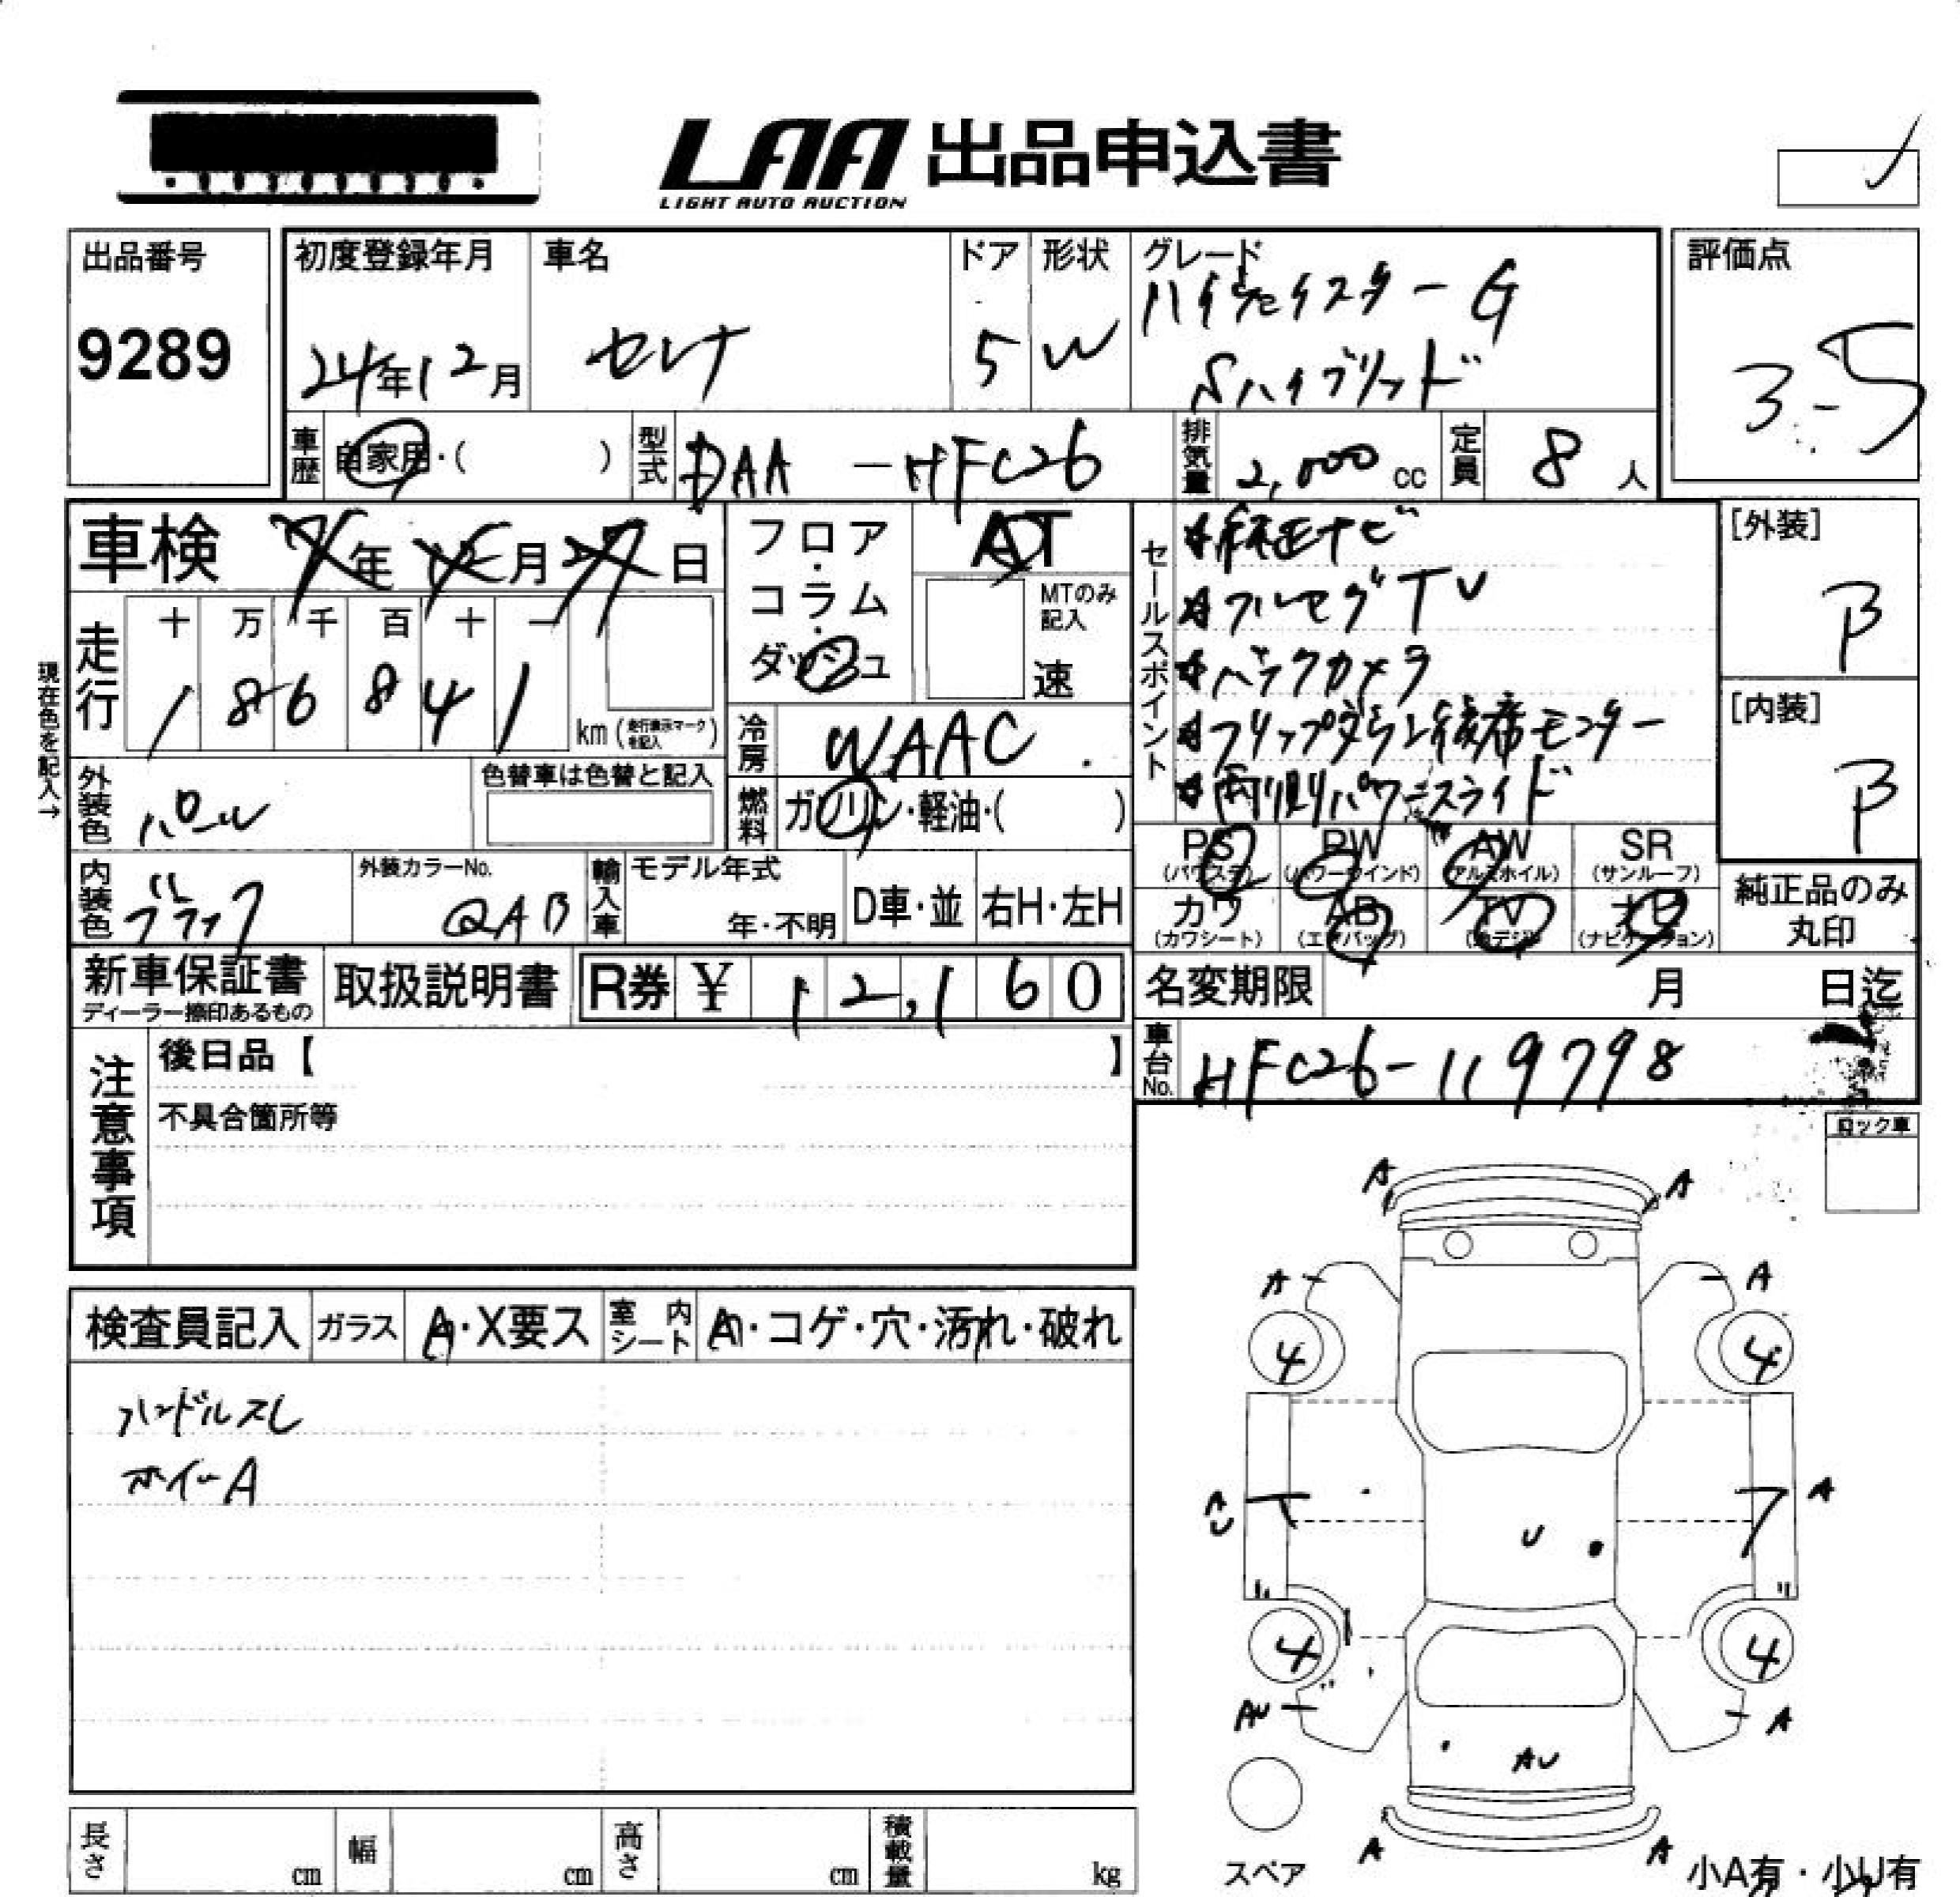 LAA 出品申込書
LIGHT AUTO AUCTION
出品番号
9289
初度登録年月
24年12月
車名
セレナ
ドア
5
形状
W
グレード
ハイウェイスター G
Sハイブリッド
評価点
3-5
車歴
自家用・( )
型式
DAA-HFC26
排気量
2,000 cc
定員
8 人
車検 7年12月27日
フロア・コラム・ダッシュ
AT
MTのみ記入
速
セールスポイント
☆純正ナビ
☆フルセグTV
☆バックカメラ
☆フリップダウン後席モニター
☆両側パワースライド
[外装]
B
[内装]
B
現在色を記入→
走行
十 万 千 百 十 一
1 8 6 8 4 1
km (走行表示マークを記入)
冷房
WAAC
外装色
パール
色替車は色替と記入
燃料
ガソリン・軽油・( )
内装色
ブラック
外装カラーNo.
QAB
輸入車
モデル年式
年・不明
D車・並
右H・左H
PS (パワステ)
PW (パワーウインド)
AW (アルミホイル)
SR (サンルーフ)
カワ (カワシート)
AB (エアバッグ)
TV (地デジ)
ナビ (ナビゲーション)
純正品のみ丸印
新車保証書
ディーラー捺印あるもの
取扱説明書
R券 ¥ 12,160
名変期限 月 日迄
車台No.
HFC26-119798
注意事項
後日品【 】
不具合箇所等
ロック車
検査員記入
ガラス
A・X要ス
室内シート
A・コゲ・穴・汚れ・破れ
ハンドルスレ
ホイールA
A A
A A
4 4
A
U
4 4
AU A
AU
A A
スペア
小A有・小U有
長さ cm
幅 cm
高さ cm
積載量 kg